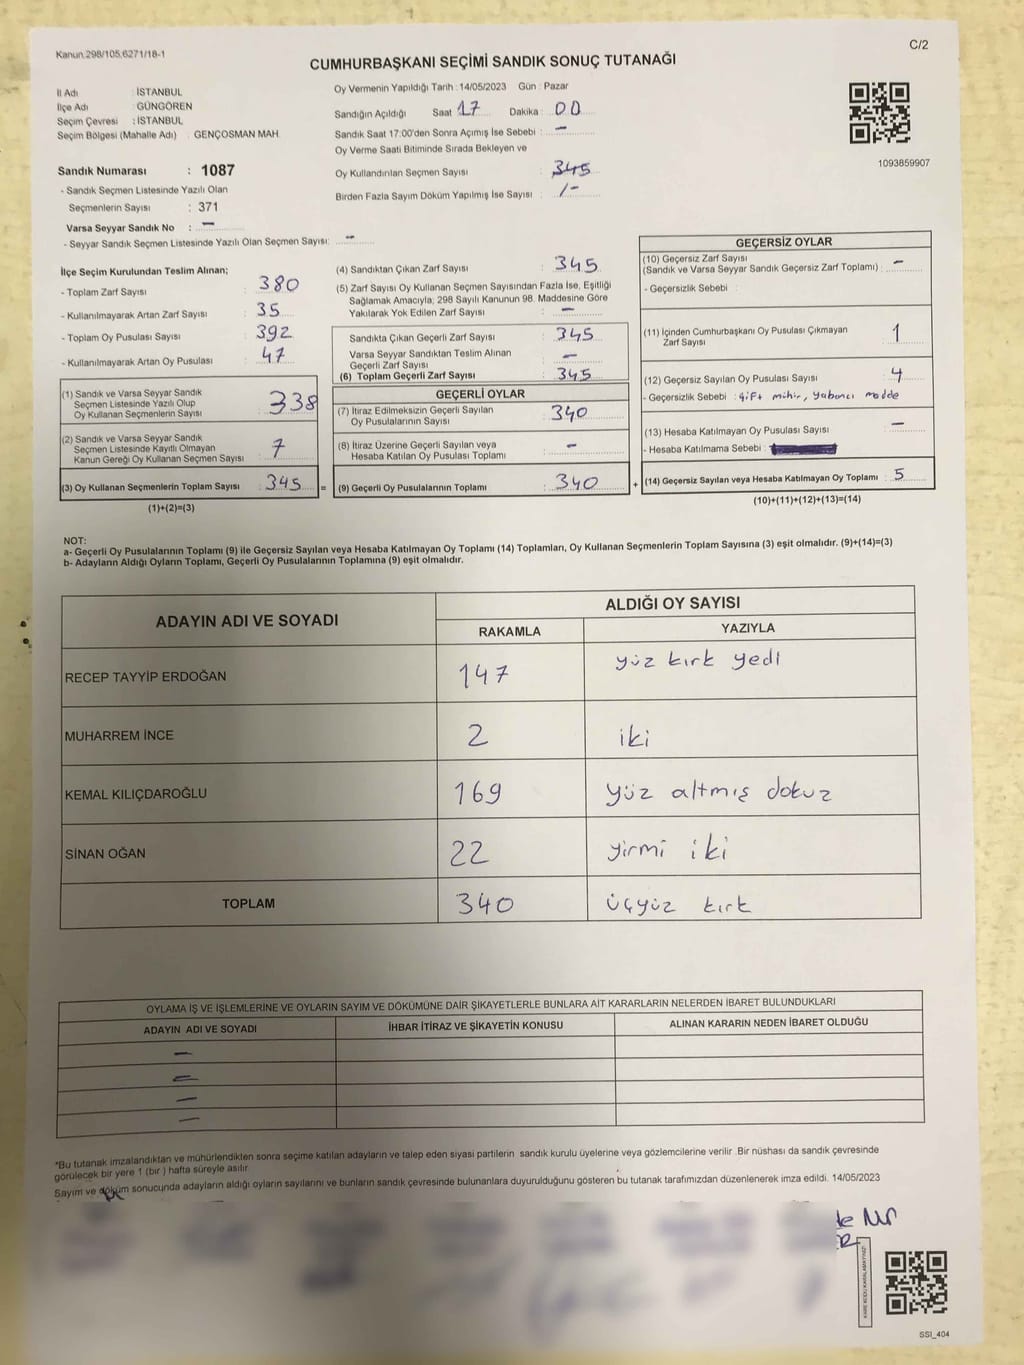 Kanun.298/105,6271/18-1
C/2
CUMHURBAŞKANI SEÇİMİ SANDIK SONUÇ TUTANAĞI
İl Adı : İSTANBUL
İlçe Adı : GÜNGÖREN
Seçim Çevresi : İSTANBUL
Seçim Bölgesi (Mahalle Adı) : GENÇOSMAN MAH.
Oy Vermenin Yapıldığı Tarih : 14/05/2023 Gün : Pazar
Sandığın Açıldığı Saat 17 Dakika : 00
Sandık Saat 17:00'den Sonra Açımış İse Sebebi : —
Oy Verme Saati Bitiminde Sırada Bekleyen ve
Oy Kullandırılan Seçmen Sayısı : 345
Birden Fazla Sayım Döküm Yapılmış İse Sayısı : /-
1093859907
Sandık Numarası : 1087
- Sandık Seçmen Listesinde Yazılı Olan
Seçmenlerin Sayısı : 371
Varsa Seyyar Sandık No : —
- Seyyar Sandık Seçmen Listesinde Yazılı Olan Seçmen Sayısı: —
İlçe Seçim Kurulundan Teslim Alınan;
- Toplam Zarf Sayısı : 380
- Kullanılmayarak Artan Zarf Sayısı : 35
- Toplam Oy Pusulası Sayısı : 392
- Kullanılmayarak Artan Oy Pusulası : 47
(1) Sandık ve Varsa Seyyar Sandık
Seçmen Listesinde Yazılı Olup
Oy Kullanan Seçmenlerin Sayısı : 338
(2) Sandık ve Varsa Seyyar Sandık
Seçmen Listesinde Kayıtlı Olmayan
Kanun Gereği Oy Kullanan Seçmen Sayısı : 7
(3) Oy Kullanan Seçmenlerin Toplam Sayısı : 345 =
(1)+(2)=(3)
(4) Sandıktan Çıkan Zarf Sayısı : 345
(5) Zarf Sayısı Oy Kullanan Seçmen Sayısından Fazla İse, Eşitliği
Sağlamak Amacıyla; 298 Sayılı Kanunun 98. Maddesine Göre
Yakılarak Yok Edilen Zarf Sayısı : —
Sandıkta Çıkan Geçerli Zarf Sayısı : 345
Varsa Seyyar Sandıktan Teslim Alınan
Geçerli Zarf Sayısı : —
(6) Toplam Geçerli Zarf Sayısı : 345
GEÇERLİ OYLAR
(7) İtiraz Edilmeksizin Geçerli Sayılan
Oy Pusulalarının Sayısı : 340
(8) İtiraz Üzerine Geçerli Sayılan veya
Hesaba Katılan Oy Pusulası Toplamı : —
(9) Geçerli Oy Pusulalarının Toplamı : 340 +
GEÇERSİZ OYLAR
(10) Geçersiz Zarf Sayısı
(Sandık ve Varsa Seyyar Sandık Geçersiz Zarf Toplamı) : —
- Geçersizlik Sebebi :
(11) İçinden Cumhurbaşkanı Oy Pusulası Çıkmayan
Zarf Sayısı : 1
(12) Geçersiz Sayılan Oy Pusulası Sayısı : 4
- Geçersizlik Sebebi : çift mühür, yabancı madde
(13) Hesaba Katılmayan Oy Pusulası Sayısı : —
- Hesaba Katılmama Sebebi :
(14) Geçersiz Sayılan veya Hesaba Katılmayan Oy Toplamı : 5
(10)+(11)+(12)+(13)=(14)
NOT:
a- Geçerli Oy Pusulalarının Toplamı (9) ile Geçersiz Sayılan veya Hesaba Katılmayan Oy Toplamı (14) Toplamları, Oy Kullanan Seçmenlerin Toplam Sayısına (3) eşit olmalıdır. (9)+(14)=(3)
b- Adayların Aldığı Oyların Toplamı, Geçerli Oy Pusulalarının Toplamına (9) eşit olmalıdır.
ADAYIN ADI VE SOYADI ALDIĞI OY SAYISI
RAKAMLA YAZIYLA
RECEP TAYYİP ERDOĞAN 147 yüz kırk yedi
MUHARREM İNCE 2 iki
KEMAL KILIÇDAROĞLU 169 yüz altmış dokuz
SİNAN OĞAN 22 yirmi iki
TOPLAM 340 üçyüz kırk
OYLAMA İŞ VE İŞLEMLERİNE VE OYLARIN SAYIM VE DÖKÜMÜNE DAİR ŞİKAYETLERLE BUNLARA AİT KARARLARIN NELERDEN İBARET BULUNDUKLARI
ADAYIN ADI VE SOYADI İHBAR İTİRAZ VE ŞİKAYETİN KONUSU ALINAN KARARIN NEDEN İBARET OLDUĞU
—
—
—
—
*Bu tutanak imzalandıktan ve mühürlendikten sonra seçime katılan adayların ve talep eden siyasi partilerin sandık kurulu üyelerine veya gözlemcilerine verilir .Bir nüshası da sandık çevresinde
görülecek bir yere 1 (bir ) hafta süreyle asılır.
Sayım ve döküm sonucunda adayların aldığı oyların sayılarını ve bunların sandık çevresinde bulunanlara duyurulduğunu gösteren bu tutanak tarafımızdan düzenlenerek imza edildi. 14/05/2023
KARE KODU KARALAMAYINIZ!
SSI_404